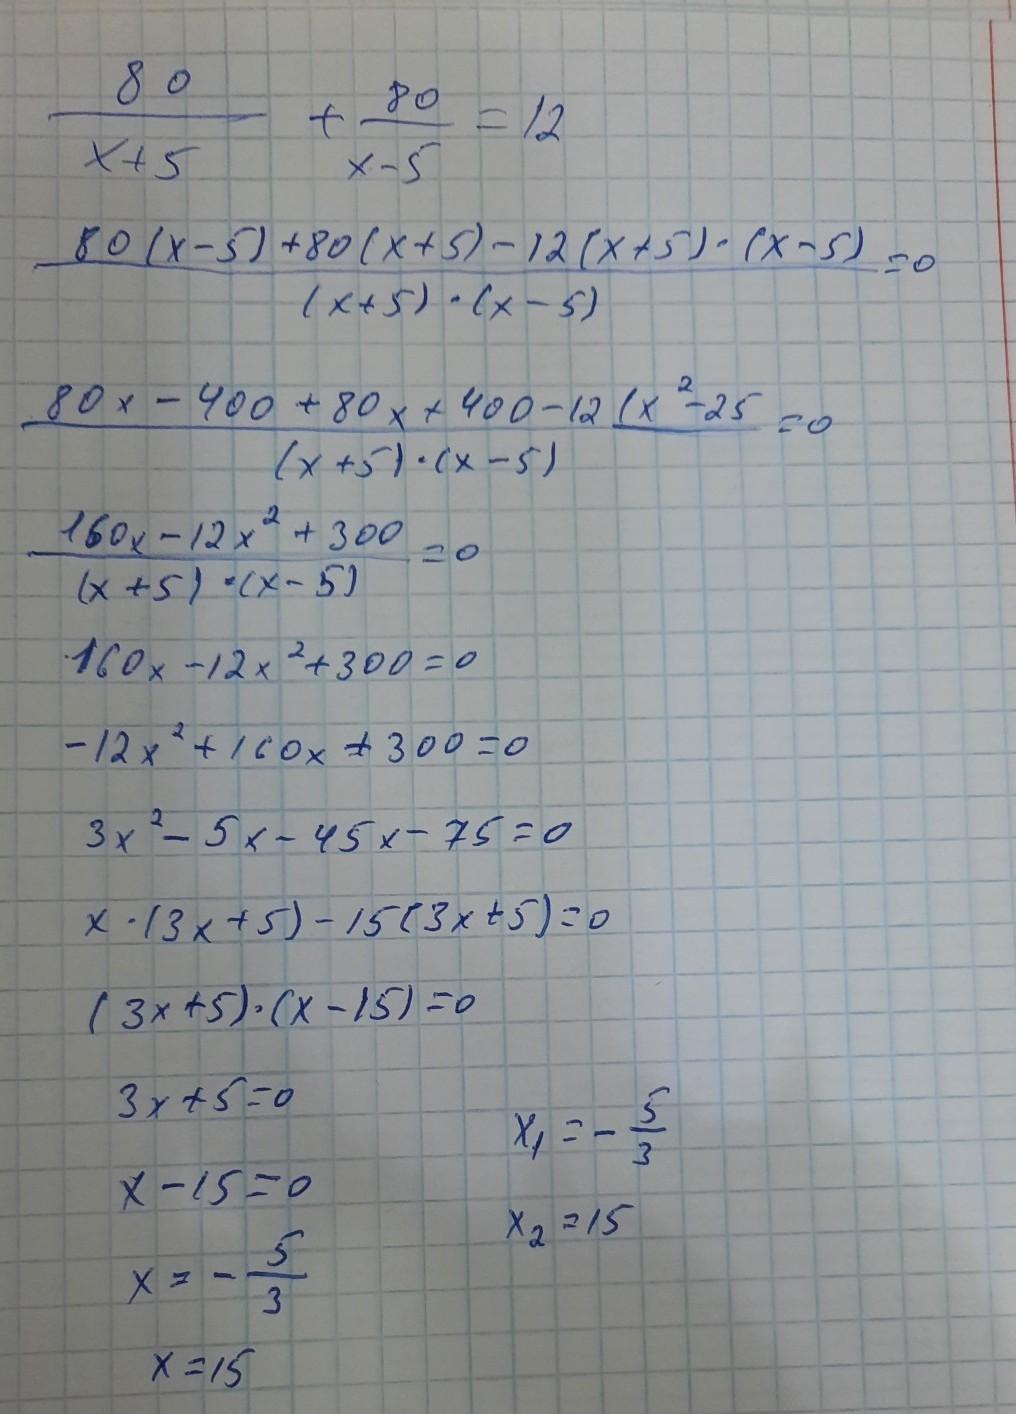 80/(x+5) + 80/(x-5) = 12
(80(x-5)+80(x+5)-12(x+5)·(x-5))/((x+5)·(x-5)) = 0
(80x-400+80x+400-12(x²-25)/((x+5)·(x-5)) = 0
(160x-12x²+300)/((x+5)·(x-5)) = 0
160x-12x²+300=0
-12x²+160x+300=0
3x²-5x-45x-75=0
x·(3x+5)-15(3x+5)=0
(3x+5)·(x-15)=0
3x+5=0
x-15=0
x=-5/3
x=15
x₁=-5/3
x₂=15